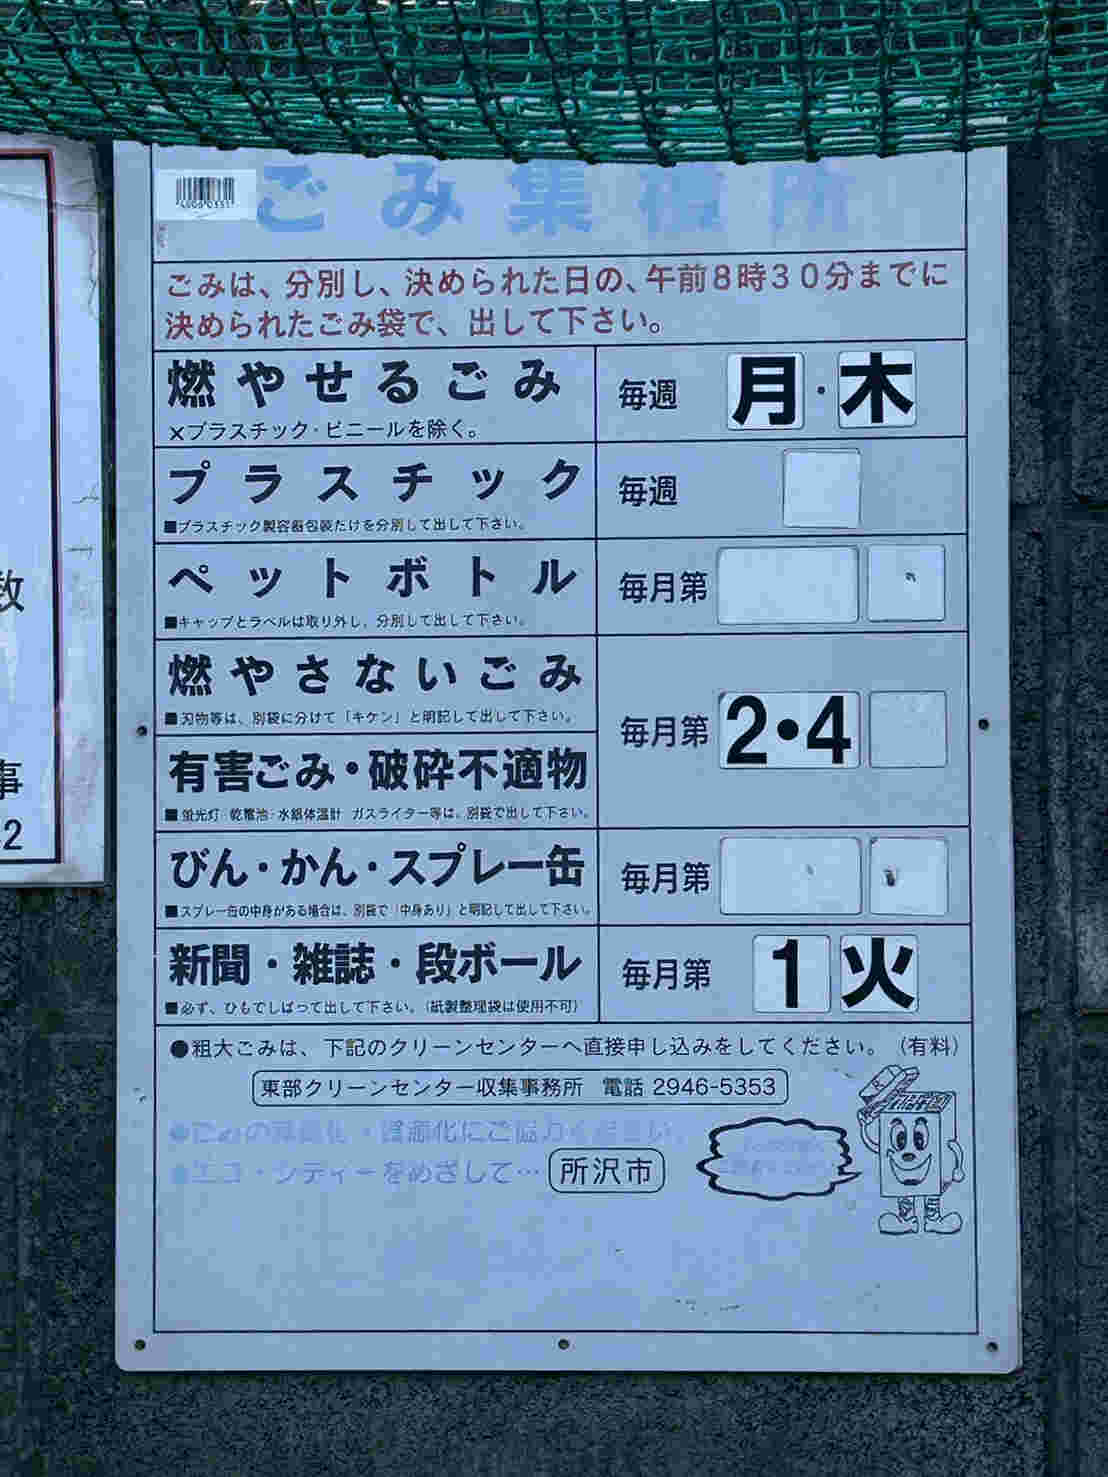 ごみ集積所
4006 0351
ごみは、分別し、決められた日の、午前8時30分までに
決められたごみ袋で、出して下さい。
燃やせるごみ
×プラスチック・ビニールを除く。
毎週 月・木
プラスチック
■プラスチック製容器包装だけを分別して出して下さい。
毎週
ペットボトル
■キャップとラベルは取り外し、分別して出して下さい。
毎月第
燃やさないごみ
■刃物等は、別袋に分けて「キケン」と明記して出して下さい。
有害ごみ・破砕不適物
■蛍光灯・乾電池・水銀体温計 ガスライター等は、別袋で出して下さい。
毎月第 2・4
びん・かん・スプレー缶
■スプレー缶の中身がある場合は、別袋で「中身あり」と明記して出して下さい。
毎月第
新聞・雑誌・段ボール
■必ず、ひもでしばって出して下さい。(紙製整理袋は使用不可)
毎月第 1 火
●粗大ごみは、下記のクリーンセンターへ直接申し込みをしてください。(有料)
東部クリーンセンター収集事務所 電話 2946-5353
●ごみの減量化・資源化にご協力ください。
●エコ・シティーをめざして… 所沢市
数
事
2